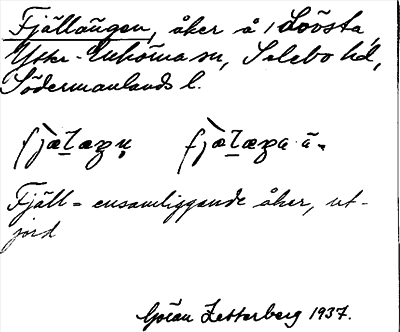 Fjällängen, åker å 1 Lövsta,
Ytter-Enhörna sn, Selebo hd,
Södermanlands l.
Fjäll = ensamliggande åker, ut-
jord
Göran Zetterberg 1937.